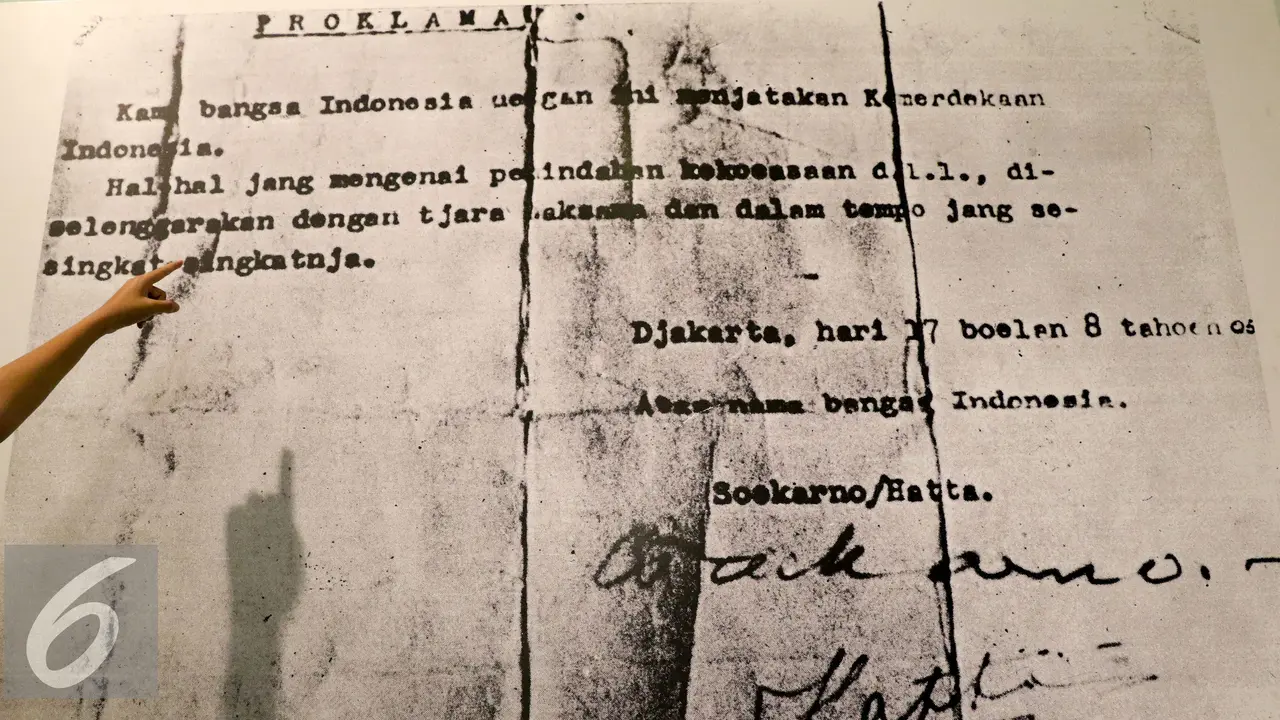 PROKLAMASI.
Kami bangsa Indonesia dengan ini menjatakan Kemerdekaan
Indonesia.
Hal-hal jang mengenai pemindahan kekoeasaan d.l.l., di-
selenggarakan dengan tjara saksama dan dalam tempo jang se-
singkat-singkatnja.
Djakarta, hari 17 boelan 8 tahoen 05
Atas nama bangsa Indonesia.
Soekarno/Hatta.
Soekarno.
Hatta
6